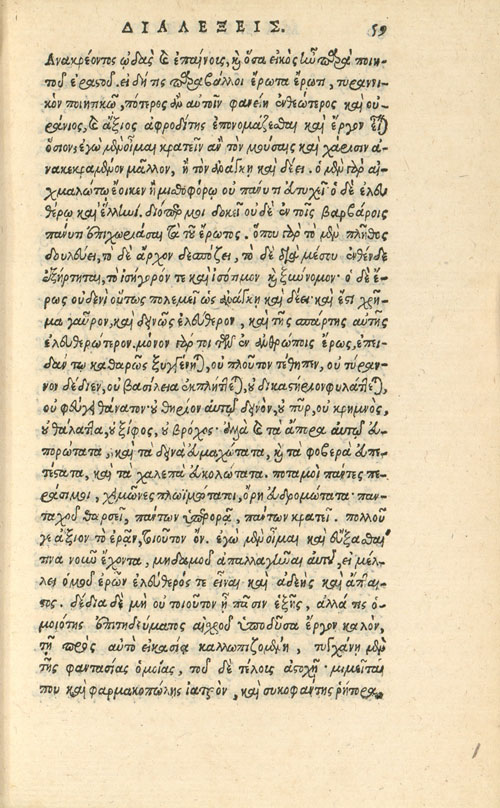 ΔΙΑΛΕΞΕΙΣ. 59
Ἀνακρέοντος ᾠδὰς καὶ ἐπαίνοις, καὶ ὅσα εἰκὸς ἦν παρὰ ποιη-
τοῦ ἐραστοῦ. εἰ δή τις παραβάλλοι ἔρωτα ἔρωτι, τυραννι-
κὸν ποιητικῷ, πότερος ἂν αὐτοῖν φανείη ἐνθεώτερος καὶ οὐ-
ράνιος, καὶ ἄξιος ἀφροδίτης ἐπονομάζεσθαι καὶ ἔργον εἶναι
ὅσιον; ἐγὼ μὲν οἶμαι κρατεῖν ἂν τὸν μούσαις καὶ χάρισιν ἀ-
νακεκραμένον μᾶλλον, ἢ τὸν ἀνάγκῃ καὶ δέει. ὁ μὲν γὰρ αἰ-
χμαλώτῳ ἔοικεν ἢ μισθοφόρῳ οὐ πάνυ τι εὐτυχεῖ· ὁ δὲ ἐλευ
θέρῳ καὶ ἕλληνι. διόπερ μοι δοκεῖ οὐδὲ ἐν τοῖς βαρβάροις
πάνυ τι ἐπιχωριάσαι τὰ τοῦ ἔρωτος. ὅπου γὰρ τὸ μὲν πλῆθος
δουλεύει, τὸ δὲ ἄρχον δεσπόζει, τὸ δὲ διὰ μέσου ἐνθένδε
ἐξῄρηται, τὸ ἰσήγορόν τε καὶ ἰσότιμον καὶ ξύννομον· ὁ δὲ ἔ-
ρως οὐδενὶ οὕτως πολεμεῖ ὡς ἀνάγκῃ καὶ δέει· καὶ ἔστι χρῆ-
μα γαῦρον, καὶ δεινῶς ἐλεύθερον, καὶ τῆς σπάρτης αὐτῆς
ἐλευθερώτερον. μόνον γάρ τοι τῶν ἐν ἀνθρώποις ἔρως, ἐπει-
δάν τῳ καθαρῶς ξυγγένηται, οὐ πλοῦτον τέθηπεν, οὐ τύραν-
νον δέδιεν, οὐ βασίλεια ἐκπλήττεται, οὐ δικαστήριον φυλάττεται,
οὐ φεύγει θάνατον· οὐ θηρίον αὐτῷ δεινὸν, οὐ πῦρ, οὐ κρημνὸς,
οὐ θάλαττα, οὐ ξίφος, οὐ βρόχος· ἀλλὰ καὶ τὰ ἄπορα αὐτῷ εὐ-
πορώτατα, καὶ τὰ δεινὰ εὐμαχώτατα, καὶ τὰ φοβερὰ εὐπε-
τέστατα, καὶ τὰ χαλεπὰ εὐκολώτατα. ποταμοὶ πάντες πε-
ράσιμοι, χειμῶνες πλοϊμώτατοι, ὄρη εὐδρομώτατα· παν-
ταχοῦ θαρσεῖ, πάντων ὑπερορᾷ, πάντων κρατεῖ. πολλοῦ
γε ἄξιον τὸ ἐρᾶν, τοιοῦτον ὄν. ἐγὼ μὲν οἶμαι καὶ εὔξασθαί
τινα νοῦν ἔχοντα, μηδαμοῦ ἀπαλλαγῆναι αὐτοῦ, εἰ μέλ-
λει ὁμοῦ ἐρῶν ἐλεύθερός τε εἶναι καὶ ἀδεὴς καὶ ἄπται-
στος. δέδια δὲ μὴ οὐ τοιοῦτον ᾖ πᾶσιν ἑξῆς, ἀλλά τις ὁ-
μοιότης ἐπιτηδεύματος αἰσχροῦ ὑποδῦσα ἔργον καλὸν,
τῇ πρὸς αὐτὸ εἰκασίᾳ καλλωπιζομένη, τυγχάνῃ μὲν
τῆς φαντασίας ὁμοίας, τοῦ δὲ τέλους ἀτυχῇ· μιμεῖται
που καὶ φαρμακοπώλης ἰατρὸν, καὶ συκοφάντης ῥήτορα,